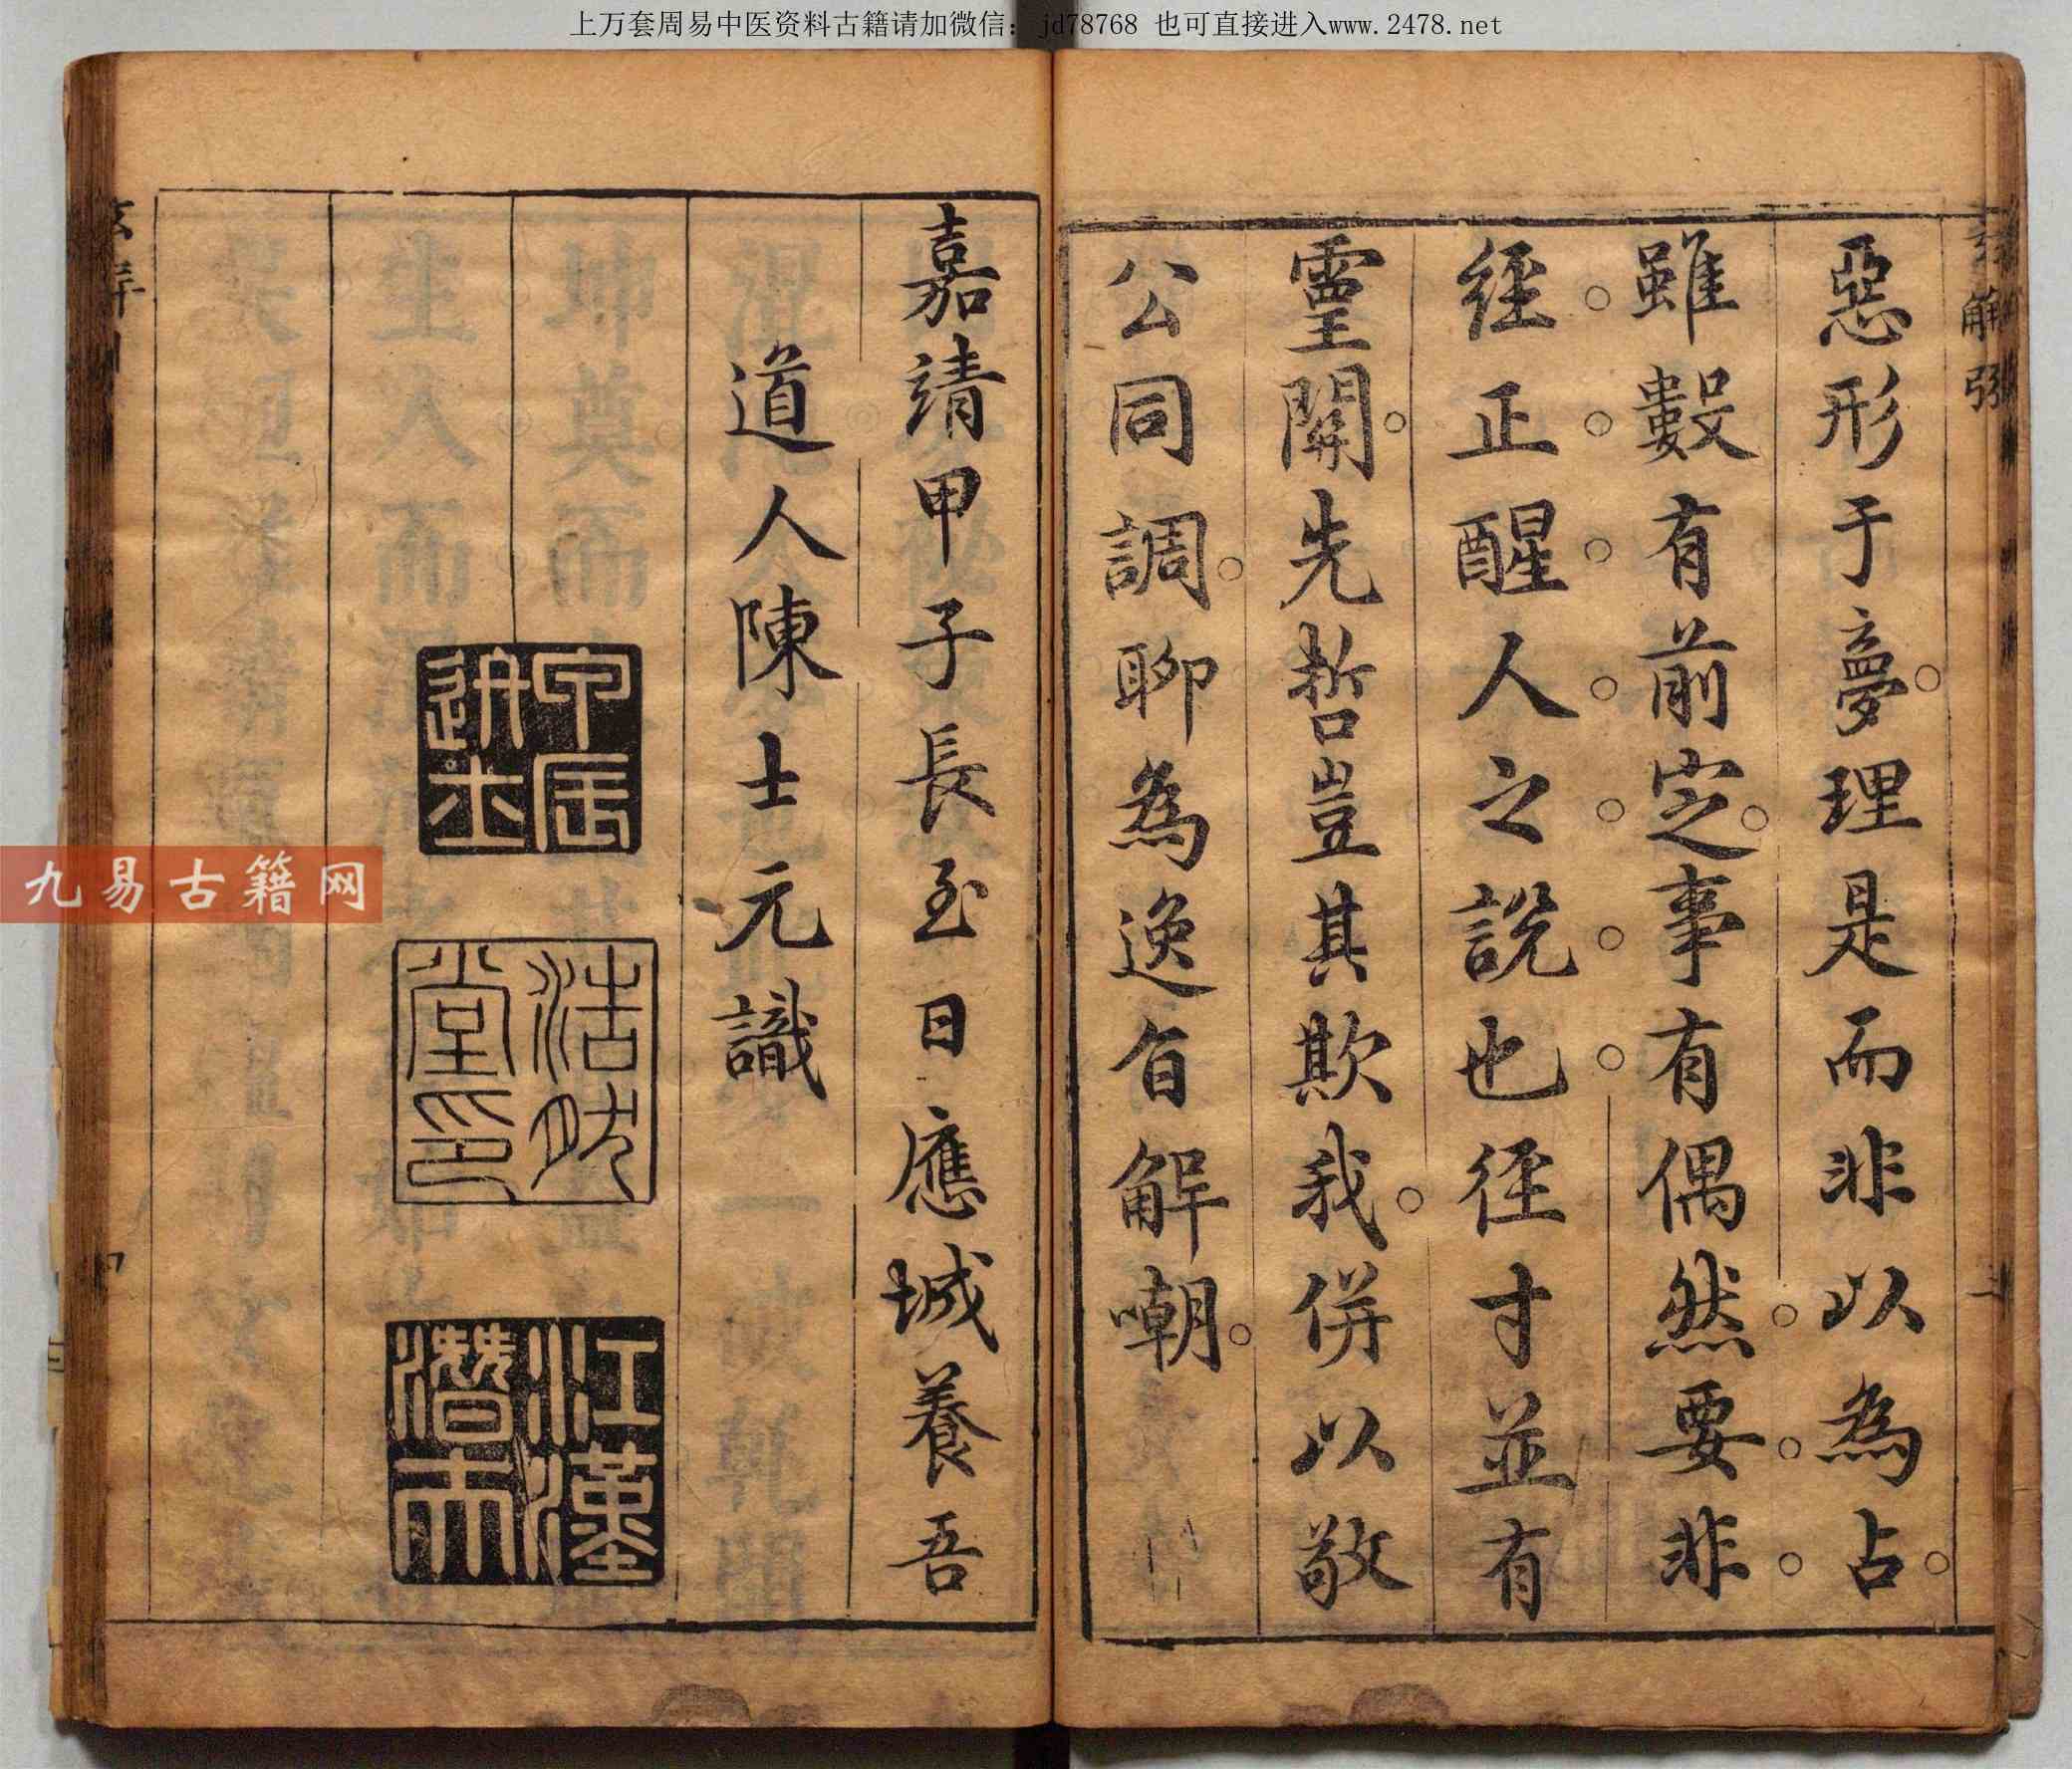 上万套周易中医资料古籍请加微信：jd78768 也可直接进入www.2478.net
惡形于夢理是而非以為占
雖數有前定事有偶然要非
經正醒人之說也徑寸並有
靈關先哲豈其欺我併以敬
公同調聊為逸旨解嘲
嘉靖甲子長至日應城養吾
道人陳士元識
甲辰進士
浩然堂印
江漢潛夫
九易古籍网